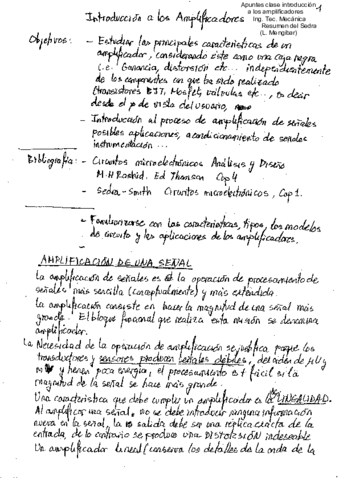 Apuntes clase introducción
a los amplificadores
Ing. Tec. Mecánica
Resumen del Sedra
(L. Mengibar)
1
Introducción a los Amplificadores
Objetivos: - Estudiar las principales características de un
amplificador, considerando éste como una caja negra
i.e. Ganancia, distorsión etc... independientemente
de los componentes con que ha sido realizado
(transistores BJT, Mosfet, válvulas etc..., es decir
desde el p. de vista del usuario,
- Introducción al proceso de amplificación de señales
posibles aplicaciones, acondicionamiento de señales
instrumentación...
Bibliografía: - Circuitos microelectrónicos Análisis y Diseño
M.H Rashid. Ed Thomson Cap 4
- Sedra-Smith Circuitos microelectrónicos, Cap 1.
- Familiarizarse con las características, tipos, los modelos
de circuito y las aplicaciones de los amplificadores.
AMPLIFICACIÓN DE UNA SEÑAL
La amplificación de señales es la operación de procesamiento de
señales más sencilla (conceptualmente) y más extendida.
La amplificación consiste en hacer la magnitud de una señal más
grande. El bloque funcional que realiza esta misión se denomina
amplificador.
La Necesidad de la operación de amplificación se justifica porque los
transductores y sensores producen señales débiles, del orden de μV y
mV y tienen poca energía, el procesamiento es + fácil si la
magnitud de la señal se hace más grande.
Una característica que debe cumplir un amplificador es la LINEALIDAD.
Al amplificar una señal, no se debe introducir ninguna información
nueva en la señal, la salida debe ser una réplica exacta de la
entrada, de lo contrario se produce una DISTORSIÓN indeseable
Un amplificador lineal conserva los detalles de la onda de la